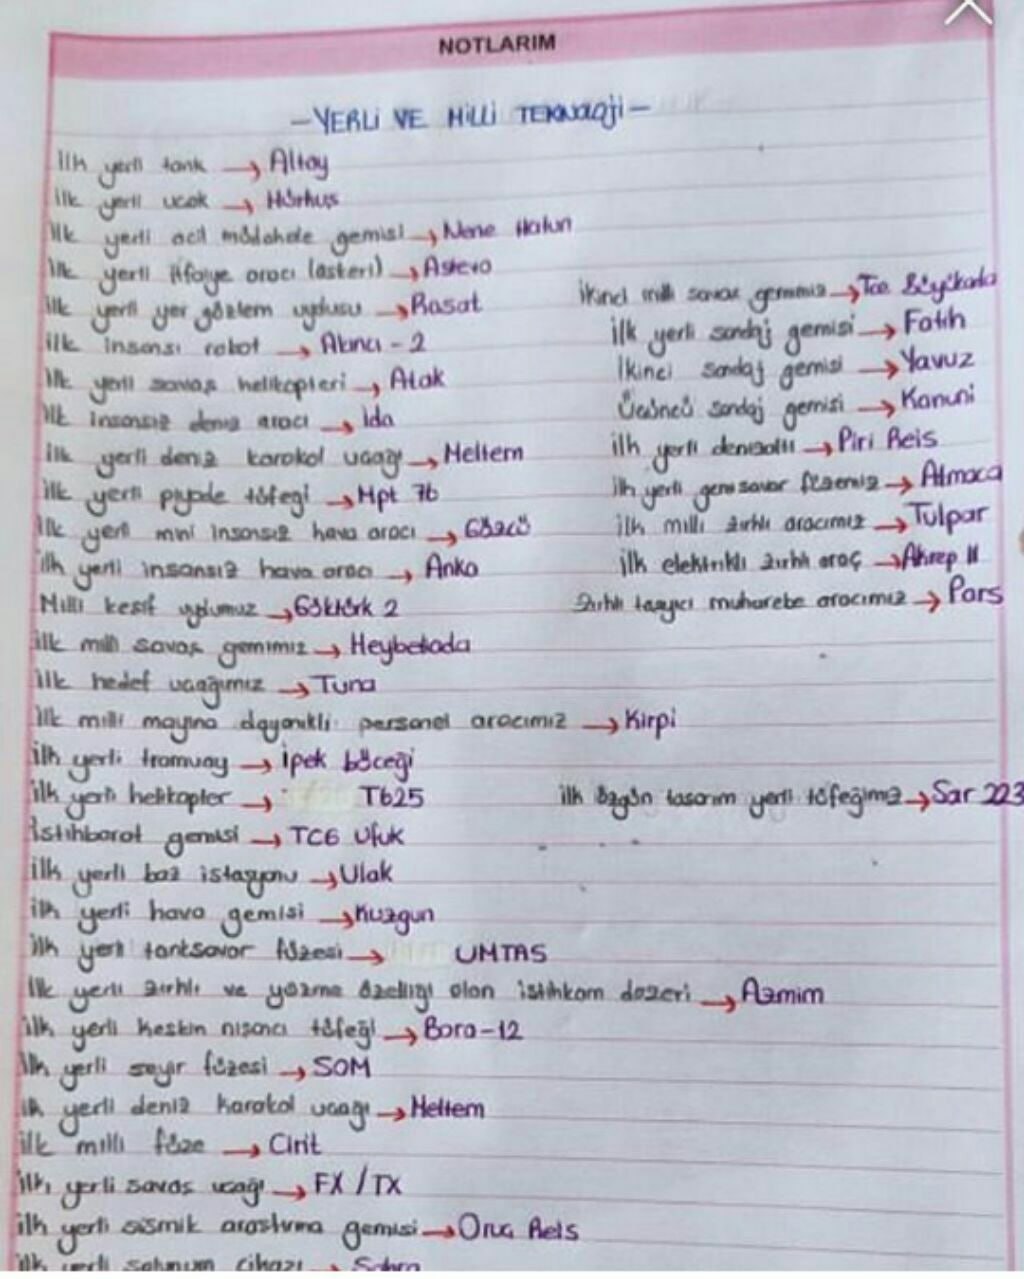 NOTLARIM
- YERLİ VE MİLLİ TEKNOLOJİ -
İlk yerli tank → Altay
İlk yerli uçak → Hürkuş
İlk yerli acil müdahale gemisi → Nene Hatun
İlk yerli itfaiye aracı (askeri) →
İlk yerli yer gözlem uydusu → Rasat
İlk insansı robot → Akıncı - 2
İlk yerli savaş helikopteri → Atak
İlk insansız deniz aracı → İda
İlk yerli deniz karakol uçağı → Meltem
İlk yerli piyade tüfeği → Mpt 76
İlk yerli mini insansız hava aracı → Gözcü
İlk yerli insansız hava aracı → Anka
Milli keşif uydumuz → Göktürk 2
İlk milli savaş gemimiz → Heybeliada
İlk hedef uçağımız → Turna
İlk milli mayına dayanıklı personel aracımız → Kirpi
İlk yerli tramvay → İpek böceği
İlk yerli helikopter → T625
İstihbarat gemisi → TCG Ufuk
İlk yerli baz istasyonu → Ulak
İlk yerli hava gemisi → Kuzgun
İlk yerli tanksavar füzesi → UMTAS
İlk yerli zırhlı ve yüzme özelliği olan istihkam dozeri → Azmim
İlk yerli keskin nişancı tüfeği → Bora-12
İlk yerli seyir füzesi → SOM
İlk yerli deniz karakol uçağı → Meltem
İlk milli füze → Cirit
İlk yerli savaş uçağı → FX / TX
İlk yerli sismik araştırma gemisi → Oruç Reis
İlk yerli solunum cihazı → Sahra
İkinci milli savaş gemimiz → Tcg Büyükada
İlk yerli sondaj gemisi → Fatih
İkinci sondaj gemisi → Yavuz
Üçüncü sondaj gemisi → Kanuni
İlk yerli denizaltı → Piri Reis
İlk yerli gemisavar füzemiz → Atmaca
İlk milli zırhlı aracımız → Tulpar
İlk elektrikli zırhlı araç → Akrep II
Zırhlı taşıyıcı muharebe aracımız → Pars
İlk özgün tasarım yerli tüfeğimiz → Sar 223